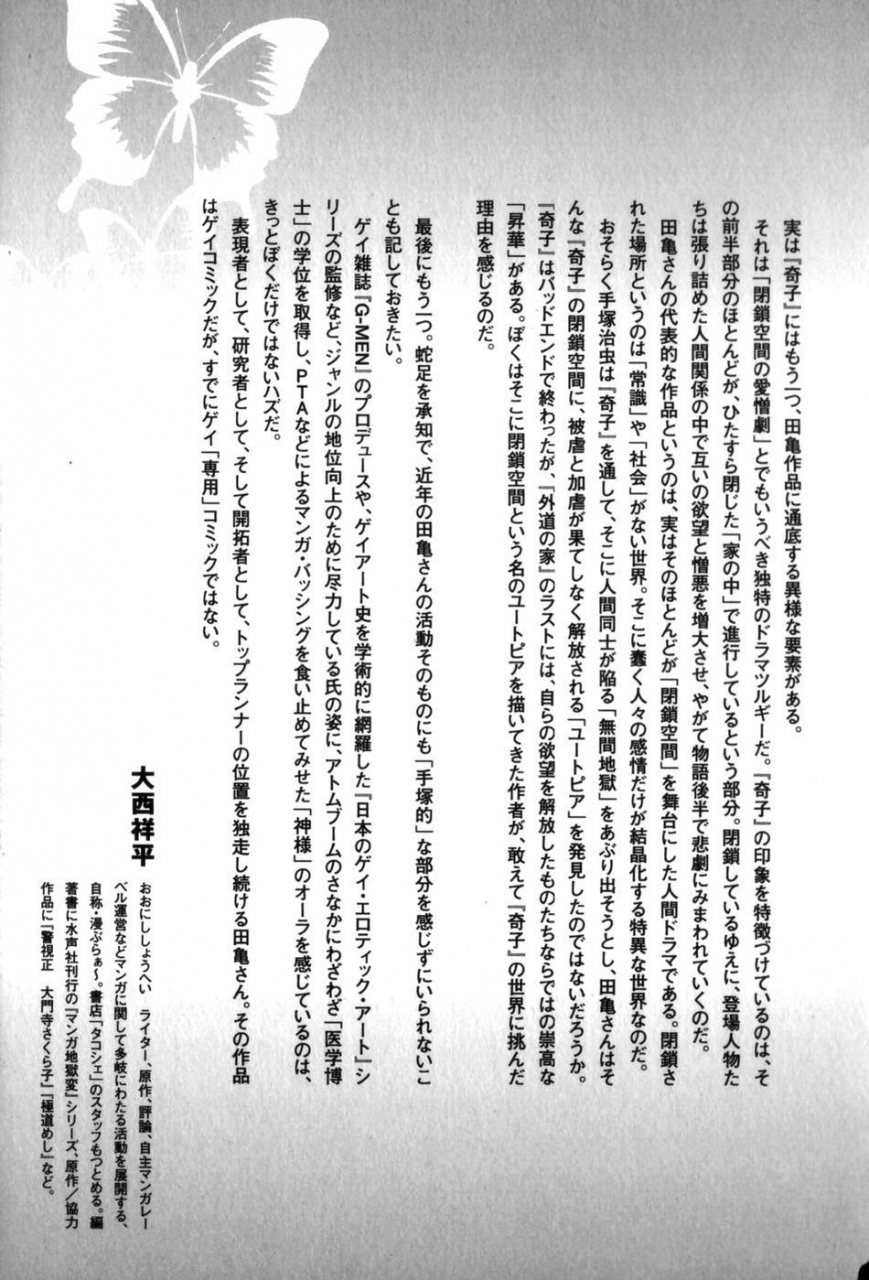 実は『奇子』にはもう一つ、田亀作品に通底する異様な要素がある。
それは「閉鎖空間の愛憎劇」とでもいうべき独特のドラマツルギーだ。『奇子』の印象を特徴づけているのは、そ
の前半部分のほとんどが、ひたすら閉じた「家の中」で進行しているという部分。閉鎖しているゆえに、登場人物た
ちは張り詰めた人間関係の中で互いの欲望と憎悪を増大させ、やがて物語後半で悲劇にみまわれていくのだ。
田亀さんの代表的な作品というのは、実はそのほとんどが「閉鎖空間」を舞台にした人間ドラマである。閉鎖さ
れた場所というのは「常識」や「社会」がない世界。そこに蠢く人々の感情だけが結晶化する特異な世界なのだ。
おそらく手塚治虫は『奇子』を通して、そこに人間同士が陥る「無間地獄」をあぶり出そうとし、田亀さんはそ
んな『奇子』の閉鎖空間に、被虐と加虐が果てしなく解放される「ユートピア」を発見したのではないだろうか。
『奇子』はバッドエンドで終わったが、『外道の家』のラストには、自らの欲望を解放したものたちならではの崇高な
「昇華」がある。ぼくはそこに閉鎖空間という名のユートピアを描いてきた作者が、敢えて『奇子』の世界に挑んだ
理由を感じるのだ。
最後にもう一つ。蛇足を承知で、近年の田亀さんの活動そのものにも「手塚的」な部分を感じずにいられないこ
とも記しておきたい。
ゲイ雑誌『G-MEN』のプロデュースや、ゲイアート史を学術的に網羅した『日本のゲイ・エロティック・アート』シ
リーズの監修など、ジャンルの地位向上のために尽力している氏の姿に、アトムブームのさなかにわざわざ「医学博
士」の学位を取得し、PTAなどによるマンガ・バッシングを食い止めてみせた「神様」のオーラを感じているのは、
きっとぼくだけではないハズだ。
表現者として、研究者として、そして開拓者として、トップランナーの位置を独走し続ける田亀さん。その作品
はゲイコミックだが、すでにゲイ「専用」コミックではない。
大西祥平
おおにししょうへい　ライター、原作、評論、自主マンガレー
ベル運営などマンガに関して多岐にわたる活動を展開する、
自称・漫ぶらぁ〜。書店「タコシェ」のスタッフもつとめる。編
著書に水声社刊行の『マンガ地獄変』シリーズ、原作／協力
作品に『警視正　大門寺さくら子』『極道めし』など。